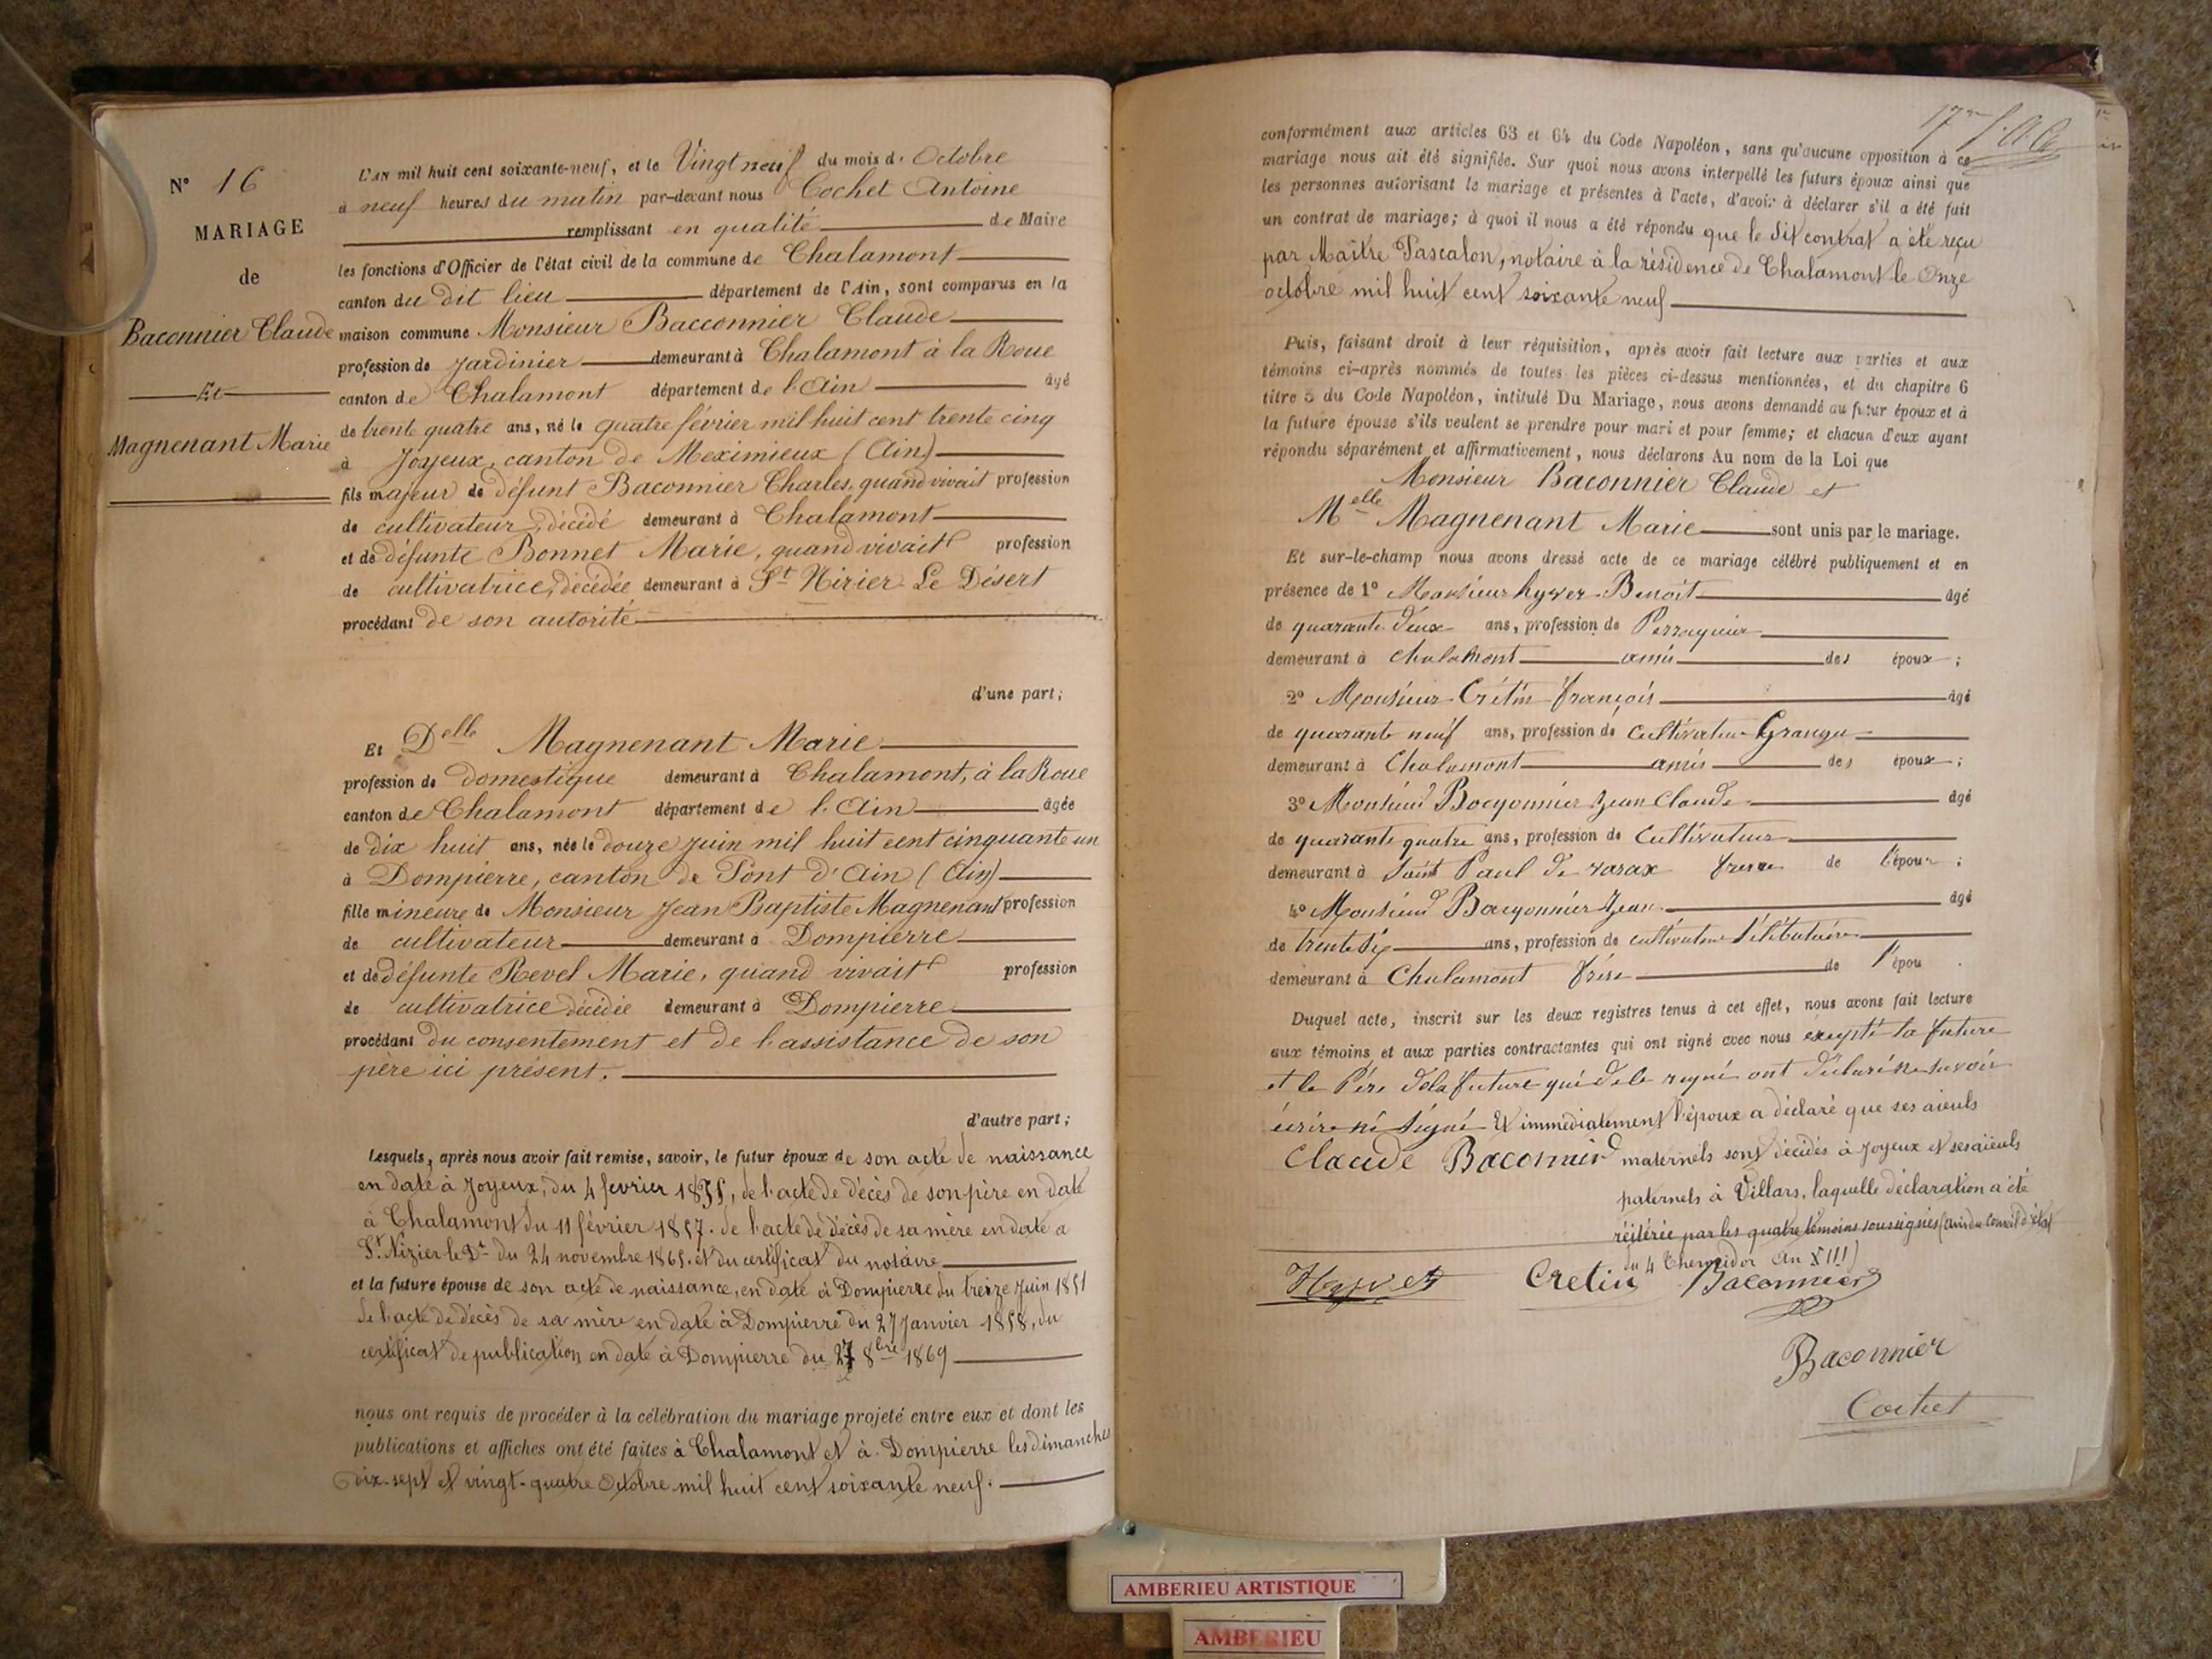 N° 16
MARIAGE
de
Baconnier Claude
Et
Magnenant Marie
L'AN mil huit cent soixante-neuf, et le Vingt neuf du mois d. Octobre
à neuf heures du matin par-devant nous Cochet Antoine
remplissant en qualité de Maire
les fonctions d'Officier de l'état civil de la commune de Chalamont
canton du dit lieu département de l'Ain, sont comparus en la
maison commune Monsieur Bacconnier Claude
profession de Jardinier demeurant à Chalamont à la Roue
canton de Chalamont département de l'Ain âgé
de trente quatre ans, né le quatre février mil huit cent trente cinq
à Joyeux, canton de Meximieux (Ain)
fils majeur de défunt Baconnier Charles, quand vivait profession
de cultivateur, décédé demeurant à Chalamont
et de défunte Bonnet Marie, quand vivait profession
de cultivatrice, décédée demeurant à St Nizier Le Désert
procédant de son autorité
d'une part;
Et Delle Magnenant Marie
profession de domestique demeurant à Chalamont, à la Roue
canton de Chalamont département de l'Ain âgée
de dix huit ans, née le douze Juin mil huit cent cinquante un
à Dompierre, canton de Pont d'Ain (Ain)
fille mineure de Monsieur Jean Baptiste Magnenant profession
de cultivateur demeurant à Dompierre
et de défunte Revel Marie, quand vivait profession
de cultivatrice décédée demeurant à Dompierre
procédant du consentement et de l'assistance de son
père ici présent.
d'autre part;
Lesquels, après nous avoir fait remise, savoir, le futur époux de son acte de naissance
en date à Joyeux, du 4 février 1835, de l'acte de décès de son père en date
à Chalamont du 11 février 1857. de l'acte de décès de sa mère en date a
St Nizier le Dt du 24 novembre 1865. et du certificat du notaire
et la future épouse de son acte de naissance, en date à Dompierre du treize Juin 1851
de l'acte de décès de sa mère en date à Dompierre du 27 Janvier 1858, du
certificat de publication en date à Dompierre du 27 8bre 1869
nous ont requis de procéder à la célébration du mariage projeté entre eux et dont les
publications et affiches ont été faites à Chalamont et à Dompierre les dimanches
dix-sept et vingt-quatre Octobre mil huit cent soixante neuf.
conformément aux articles 63 et 64 du Code Napoléon, sans qu'aucune opposition à ce
mariage nous ait été signifiée. Sur quoi nous avons interpellé les futurs époux ainsi que
les personnes autorisant le mariage et présentes à l'acte, d'avoir à déclarer s'il a été fait
un contrat de mariage; à quoi il nous a été répondu que le dit contrat a été reçu
par Maître Pascalon, notaire à la résidence de Chalamont le Onze
octobre mil huit cent soixante neuf
Puis, faisant droit à leur réquisition, après avoir fait lecture aux parties et aux
témoins ci-après nommés de toutes les pièces ci-dessus mentionnées, et du chapitre 6
titre 5 du Code Napoléon, intitulé Du Mariage, nous avons demandé au futur époux et à
la future épouse s'ils veulent se prendre pour mari et pour femme; et chacun d'eux ayant
répondu séparément et affirmativement, nous déclarons Au nom de la Loi que
Monsieur Baconnier Claude et
Melle Magnenant Marie sont unis par le mariage.
Et sur-le-champ nous avons dressé acte de ce mariage célébré publiquement et en
présence de 1° Monsieur Benoit âgé
de quarante deux ans, profession de Perruquier
demeurant à Chalamont amis des époux;
2° Monsieur Crétin françois âgé
de quarante neuf ans, profession de cultivateur Granger
demeurant à Chalamont amis des époux;
3° Monsieur Jean Claude âgé
de quarante quatre ans, profession de Cultivateur
demeurant à Saint Paul de varax frere de l'époux;
4° Monsieur Jean âgé
de trente ans, profession de cultivateur Célibataire
demeurant à Chalamont frère de l'épou
Duquel acte, inscrit sur les deux registres tenus à cet effet, nous avons fait lecture
aux témoins et aux parties contractantes qui ont signé avec nous excepté la future
et le Père de la future qui de le requi ont déclaré ne savoir
écrire ni signé Et immédiatement l'époux a déclaré que ses aïeuls
Claude Baconnier maternels sont décédés à Joyeux et ses aïeuls
paternels à Villars, laquelle déclaration a été
réitérée par les quatre témoins soussignés (avis du conseil d'état
du 4 Thermidor An XIII)
Cretin Baconnier
Baconnier
Cochet
AMBERIEU ARTISTIQUE
AMBERIEU